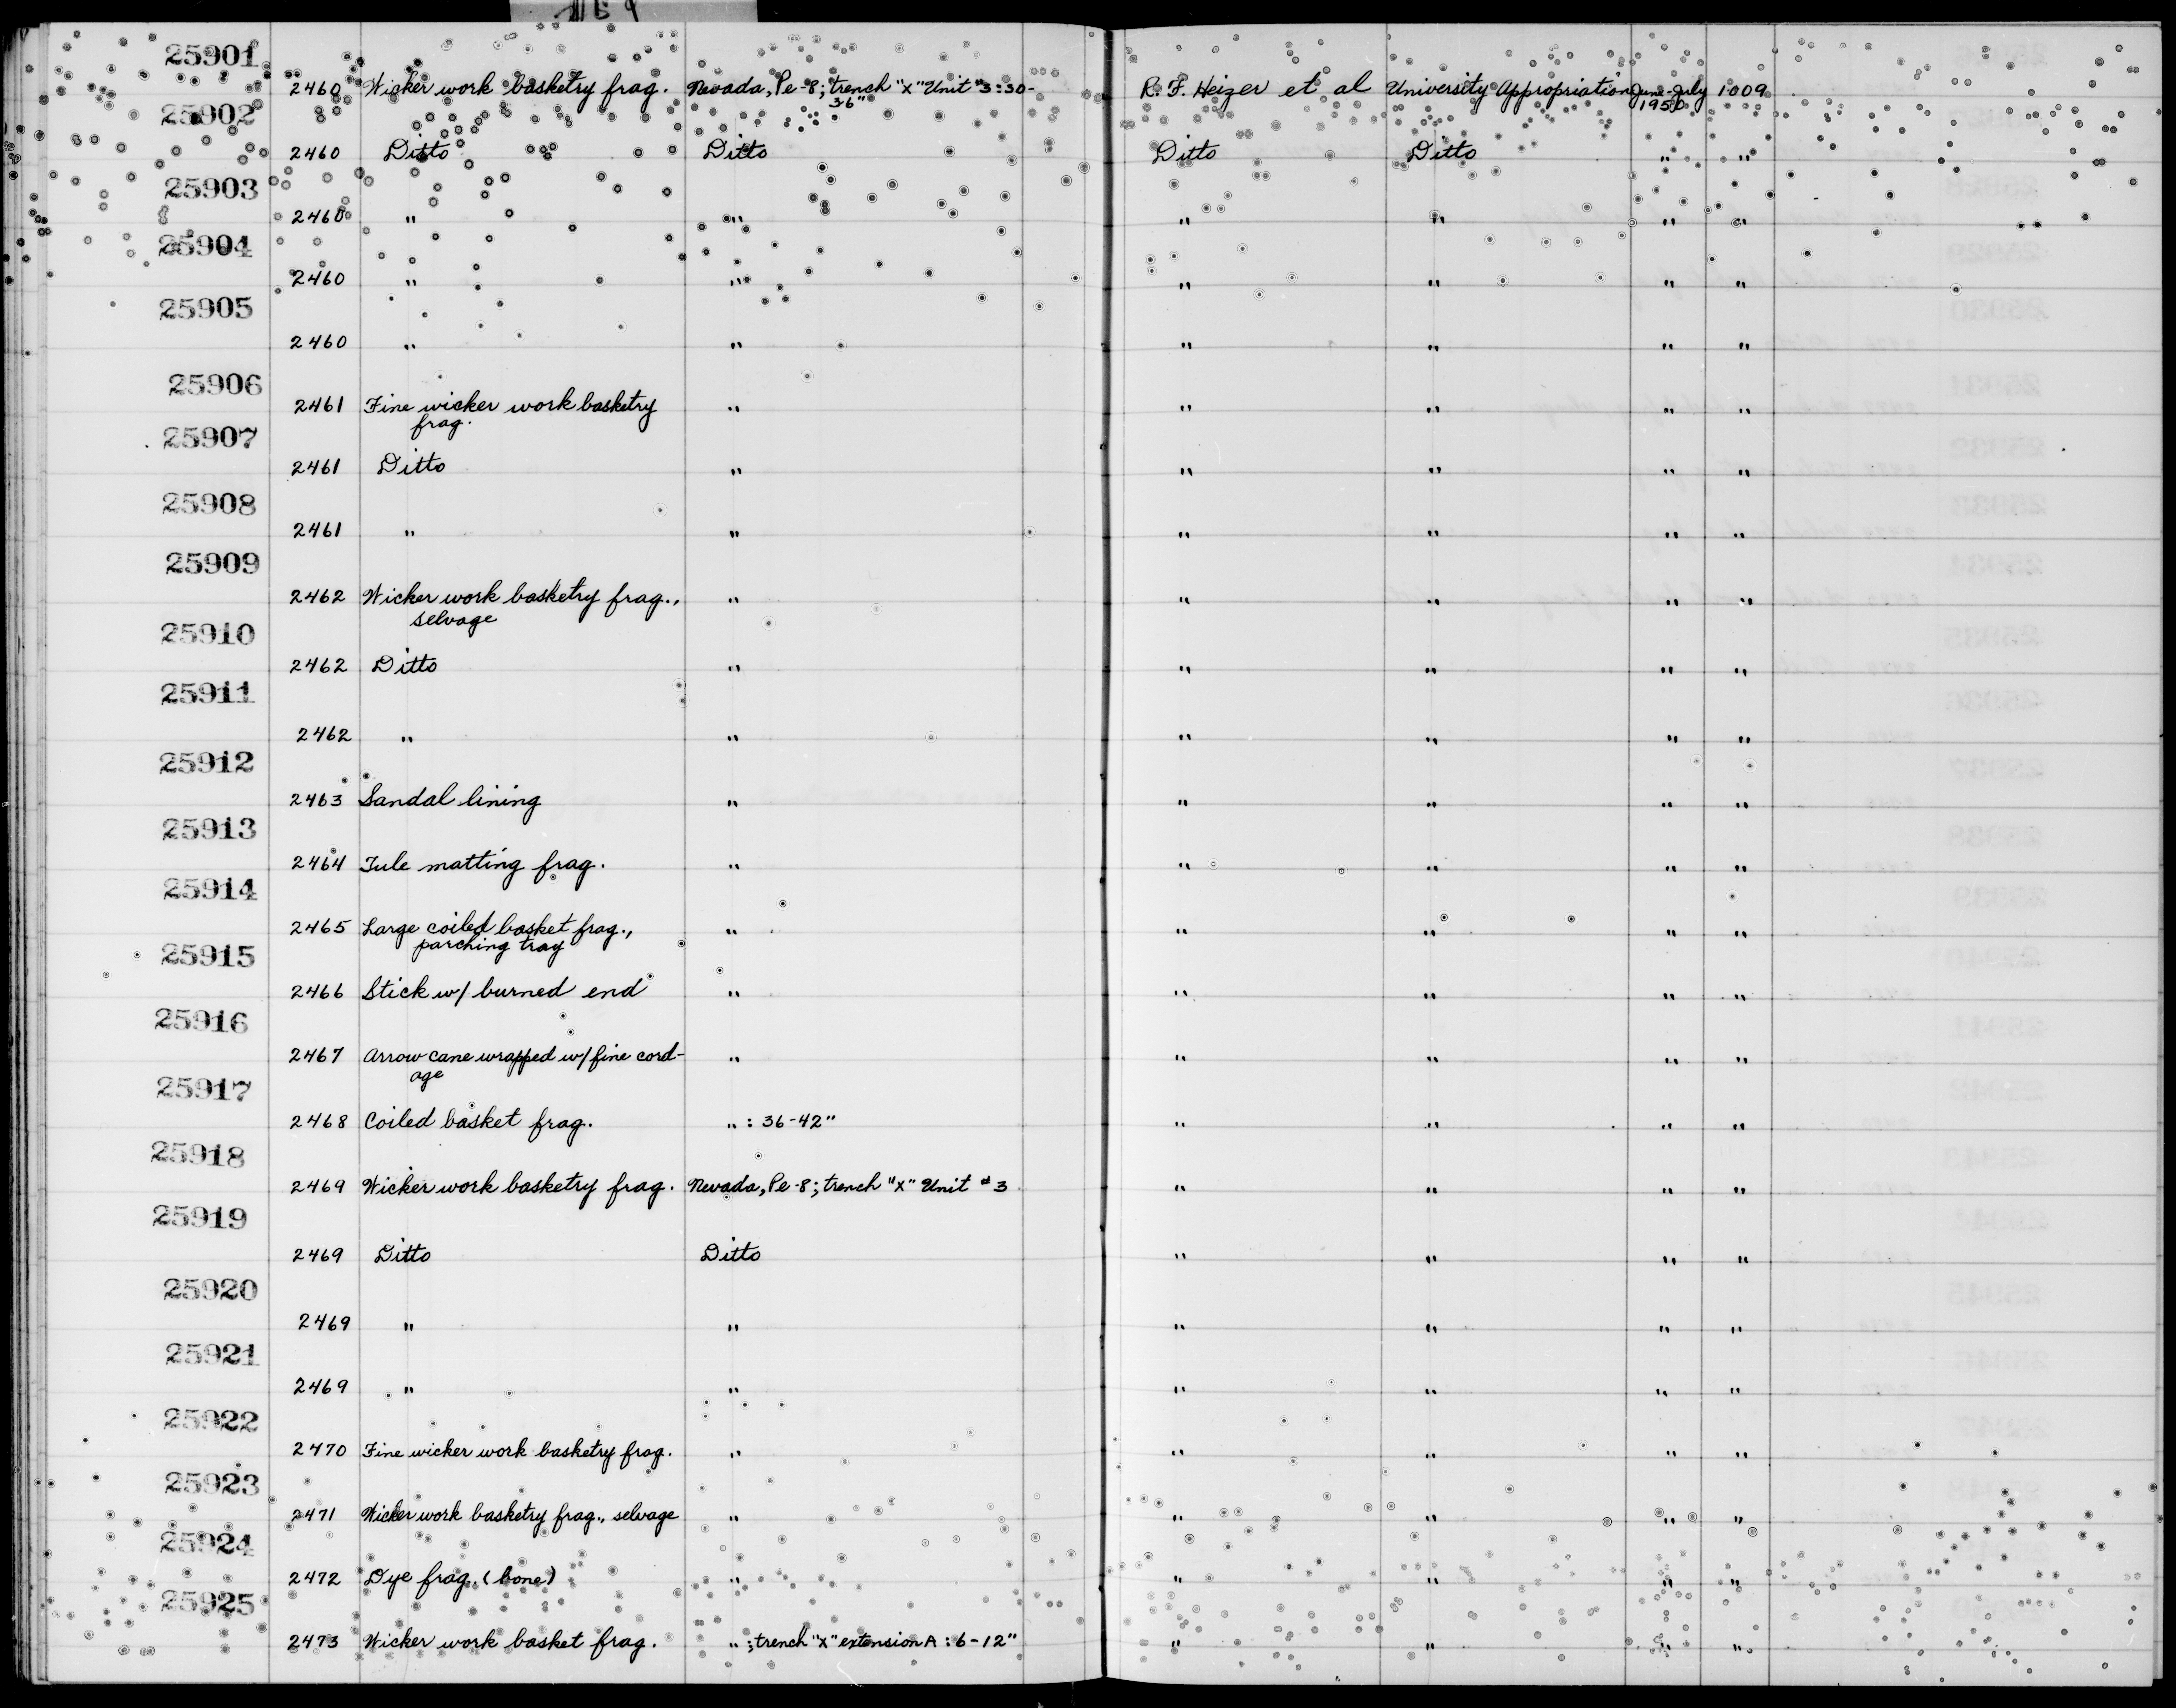 25901
2460 Wicker work basketry frag. Nevada, Pe-8; trench "X" Unit #3:30- R. F. Heizer et al University Appropriation June-July 1009
36" 1950
25902
2460 Ditto Ditto Ditto Ditto " "
25903
2460 " " " " " "
25904
2460 " " " " " "
25905
2460 " " " " " "
25906
2461 Fine wicker work basketry " " " " "
frag.
25907
2461 Ditto " " " " "
25908
2461 " " " " " "
25909
2462 Wicker work basketry frag., " " " " "
selvage
25910
2462 Ditto " " " " "
25911
2462 " " " " " "
25912
2463 Sandal lining " " " " "
25913
2464 Tule matting frag. " " " " "
25914
2465 Large coiled basket frag., " " " " "
parching tray
25915
2466 Stick w/ burned end " " " " "
25916
2467 Arrow cane wrapped w/ fine cord- " " " " "
age
25917
2468 Coiled basket frag. " : 36-42" " " " "
25918
2469 Wicker work basketry frag. Nevada, Pe-8; trench "X" Unit #3 " " " "
25919
2469 Ditto Ditto " " " "
25920
2469 " " " " " "
25921
2469 " " " " " "
25922
2470 Fine wicker work basketry frag. " " " " "
25923
2471 Wicker work basketry frag., selvage " " " " "
25924
2472 Dye frag. (bone) " " " " "
25925
2473 Wicker work basket frag. " ; trench "X" extension A : 6-12" " " " "